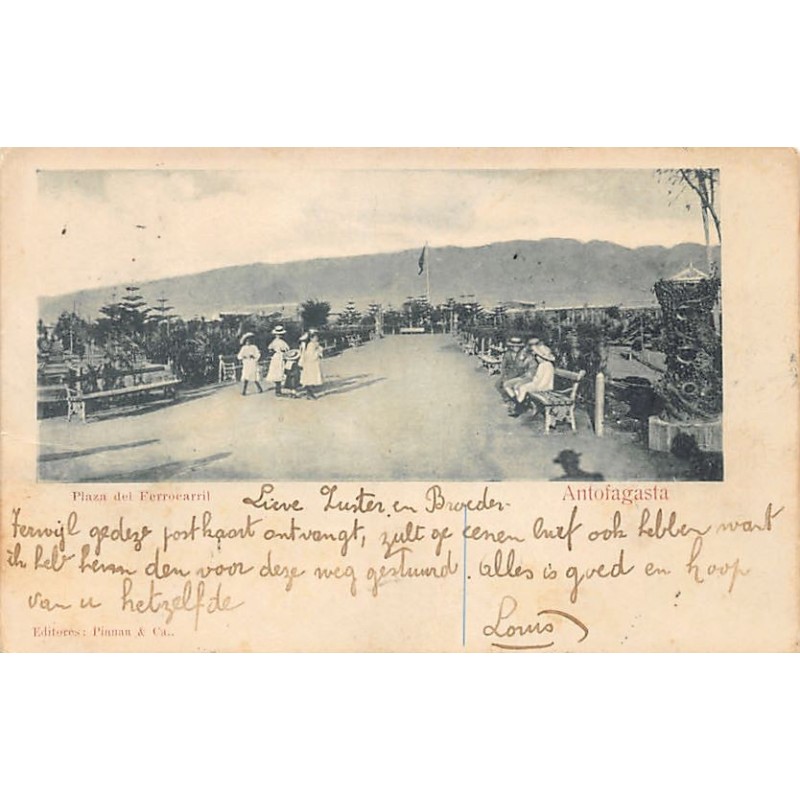 Plaza del Ferrocarril
Antofagasta
Lieve Zuster en Broeder
Terwijl ge deze postkaart ontvangt, zult ge eenen brief ook hebben want
ik heb hem den voor deze weg gestuurd. Alles is goed en hoop
van u hetzelfde
Louis
Editores: Pinnau & Ca..